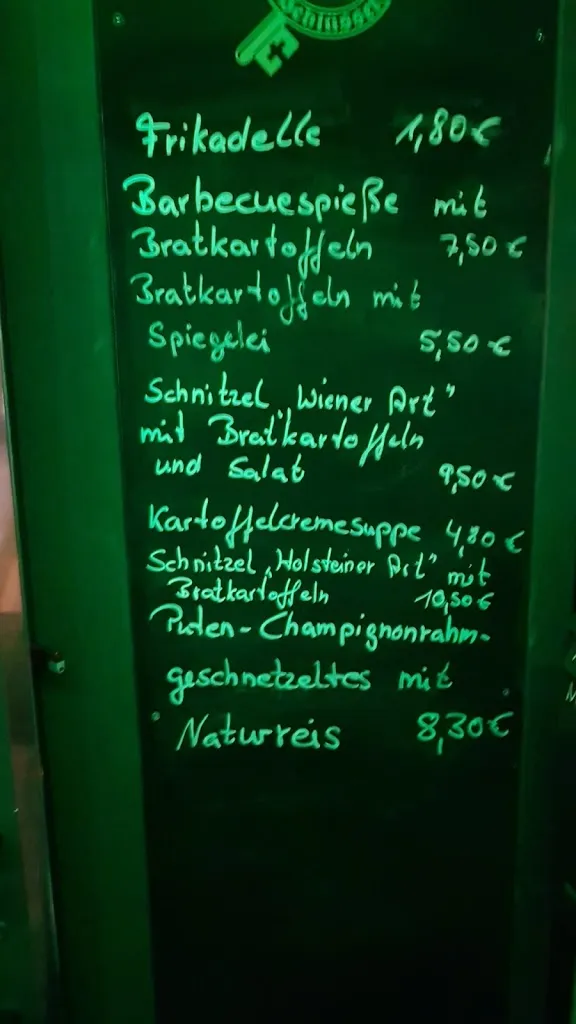 Schlüssel
Frikadelle 1,80€
Barbecuespieße mit
Bratkartoffeln 7,50€
Bratkartoffeln mit
Spiegelei 5,50€
Schnitzel „Wiener Art"
mit Bratkartoffeln
und Salat 9,50€
Kartoffelcremesuppe 4,80€
Schnitzel „Holsteiner Art" mit
Bratkartoffeln 10,50€
Puten-Champignonrahm-
geschnetzeltes mit
Naturreis 8,30€